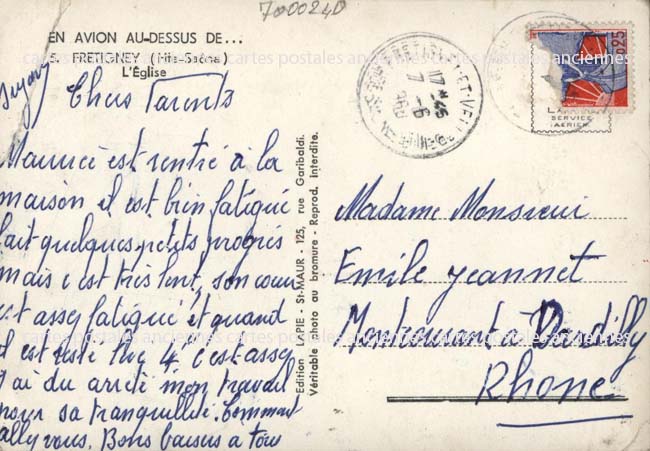 700024D
EN AVION AU-DESSUS DE...
5. FRETIGNEY (Hte-Saône)
L'Église
Chers Parents
Maurice est rentré à la
maison il est bien fatigué
fait quelques petits progrés
mais c'est très lent, son coeur
est assez fatigué et quand
il est resté 4 c'est assez
J'ai du arrêté mon travail
pour sa tranquillité. Comment
allez vous. Bons baisers a tous
Edition LAPIE - St-MAUR - 125, rue Garibaldi.
Véritable photo au bromure - Reprod. interdite.
17 H 45
7 - 6
0,25
SERVICE
AERIEN
Madame Monsieur
Emile Jeannet
à Dardilly
Rhone
cartes postales anciennes cartes postales anciennes cartes postales anciennes
cartes postales anciennes cartes postales anciennes cartes postales anciennes